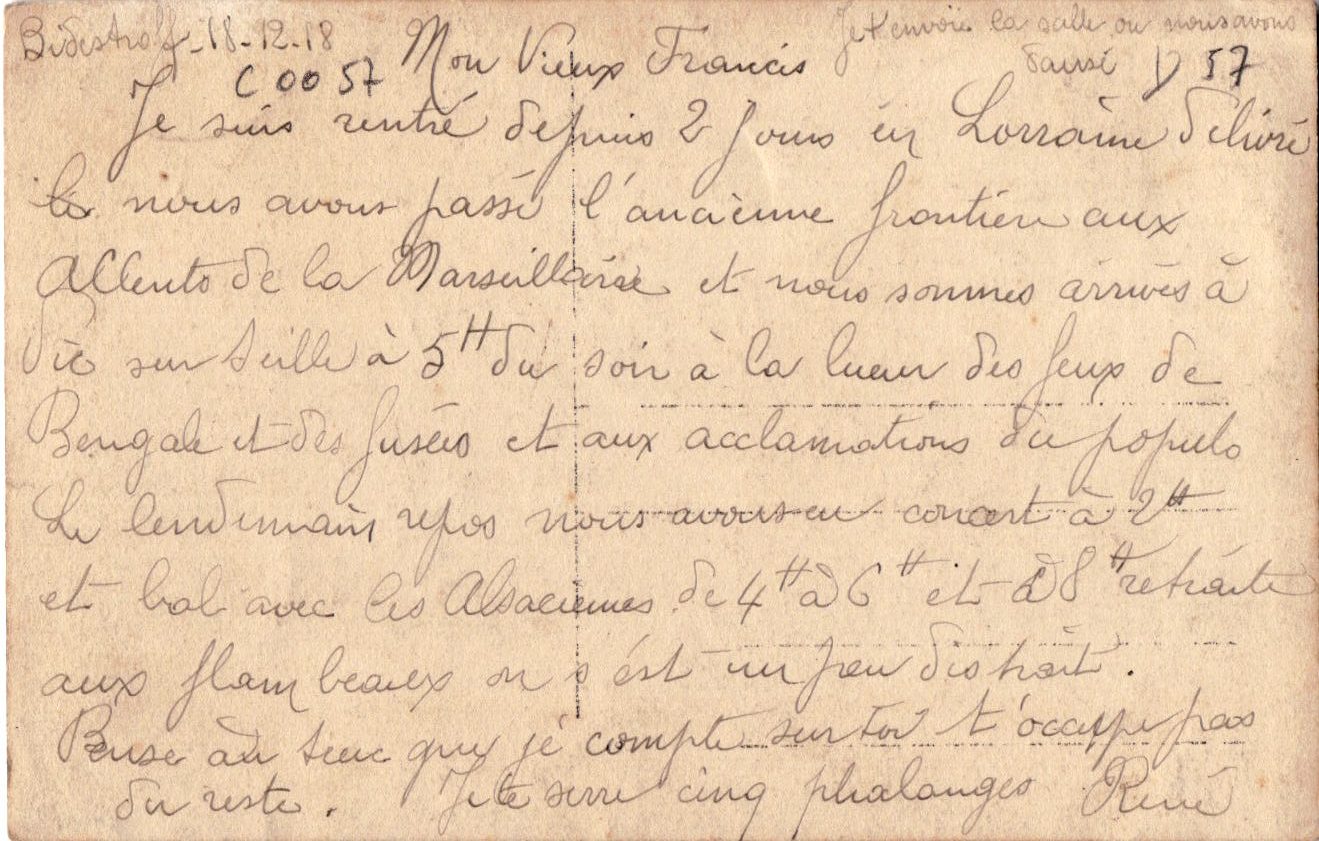 Bidestroff - 18-12-18
Je t'envoie la salle ou nous avons
dansé
Mon Vieux Francis
C 00 57
D 57
Je suis rentré depuis 2 Jours en Lorraine délivré
nous avons passé l'ancienne frontière aux
Accents de la Marseillaise et nous sommes arrivés à
Vic sur Seille à 5H du soir à la lueur des feux de
Bengale et des fusées et aux acclamations du populo
Le lendemain repos nous avons eu concert à 2H
et bal avec les Alsaciennes de 4H à 6H et à 8H retraite
aux flambeaux on s'est un peu distrait.
Pense au truc que je compte sur toi t'occuppe pas
du reste. Je te serre cinq phalanges René